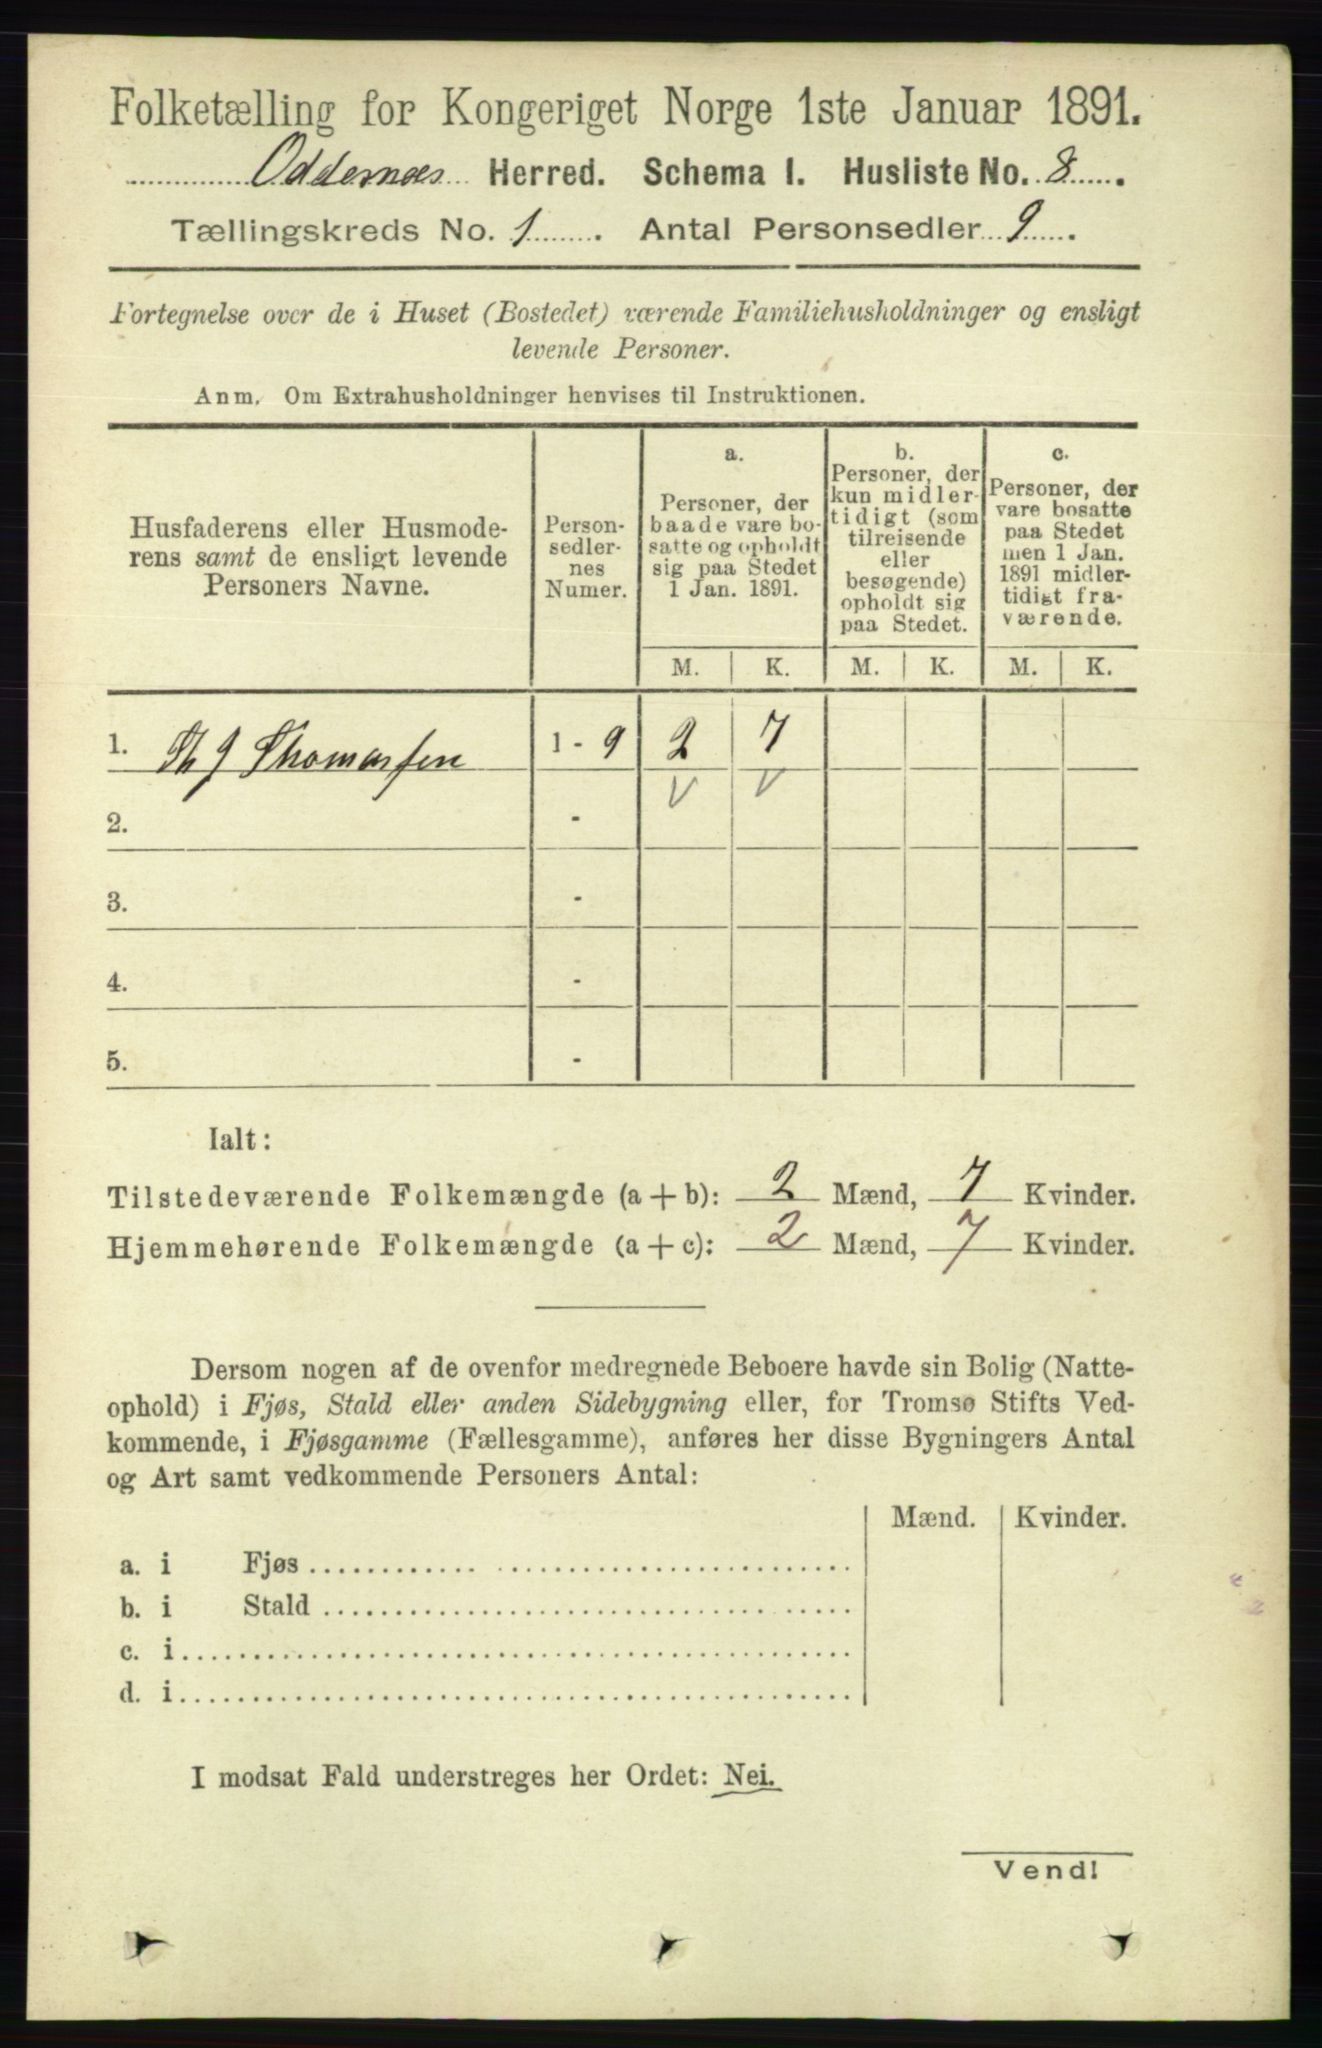 Folketælling for Kongeriget Norge 1ste Januar 1891.
Oddernæs Herred. Schema I. Husliste No. 8.
Tællingskreds No. 1. Antal Personsedler 9.
Fortegnelse over de i Huset (Bostedet) værende Familiehusholdninger og ensligt
levende Personer.
Anm. Om Extrahusholdninger henvises til Instruktionen.
Husfaderens eller Husmode-
rens samt de ensligt levende
Personers Navne.
Person-
sedler-
nes
Numer.
a.
Personer, der
baade vare bo-
satte og opholdt
sig paa Stedet
1 Jan. 1891.
b.
Personer, der
kun midler-
tidigt (som
tilreisende
eller
besøgende)
opholdt sig
paa Stedet.
c.
Personer, der
vare bosatte
paa Stedet
men 1 Jan.
1891 midler-
tidigt fra-
værende.
M. K. M. K. M. K.
1. Th J Thomassen 1 - 9 2 7
V V
2. -
3. -
4. -
5. -
Ialt:
Tilstedeværende Folkemængde (a + b): 2 Mænd, 7 Kvinder.
Hjemmehørende Folkemængde (a + c): 2 Mænd, 7 Kvinder.
Dersom nogen af de ovenfor medregnede Beboere havde sin Bolig (Natte-
ophold) i Fjøs, Stald eller anden Sidebygning eller, for Tromsø Stifts Ved-
kommende, i Fjøsgamme (Fællesgamme), anføres her disse Bygningers Antal
og Art samt vedkommende Personers Antal:
Mænd. Kvinder.
a. i Fjøs
b. i Stald
c. i
d. i
I modsat Fald understreges her Ordet: Nei.
Vend!